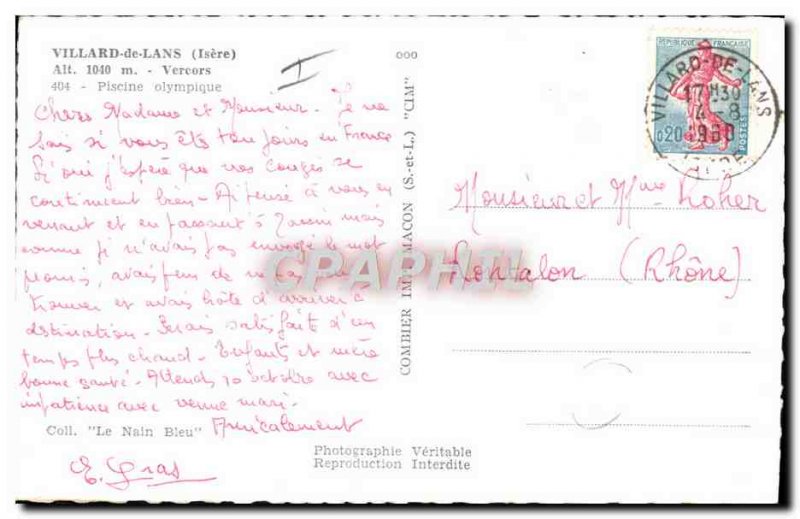 VILLARD-de-LANS (Isère)
Alt. 1040 m. - Vercors
404 - Piscine olympique
Chers Madame et Monsieur - Je ne
sais si vous êtes toujours en France
Si oui j'espère que vos congés se
continuent bien - Ai pensé à vous en
venant et en passant à mais
comme je n'avais pas envoyé le mot
promis, avais peur de ne pas vous
trouver et avais hâte d'arriver à
destination - Serais satisfait d'un
temps plus chaud - Enfants et mère
bonne santé - Attends 10 octobre avec
impatience avec venue mari -
Amicalement
Coll. "Le Nain Bleu"
E. Gras
ooo
COMBIER IMP. MACON (S.-et-L.) "CIM"
Photographie Véritable
Reproduction Interdite
REPUBLIQUE FRANÇAISE
0,20
POSTES
VILLARD-DE-LANS
17H30
4-8
1960
ISERE
Monsieur et Mme Loher
Rontalon (Rhône)
CPAPHIL